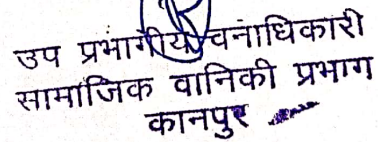 उप प्रभागीय वनाधिकारी
सामाजिक वानिकी प्रभाग
कानपुर